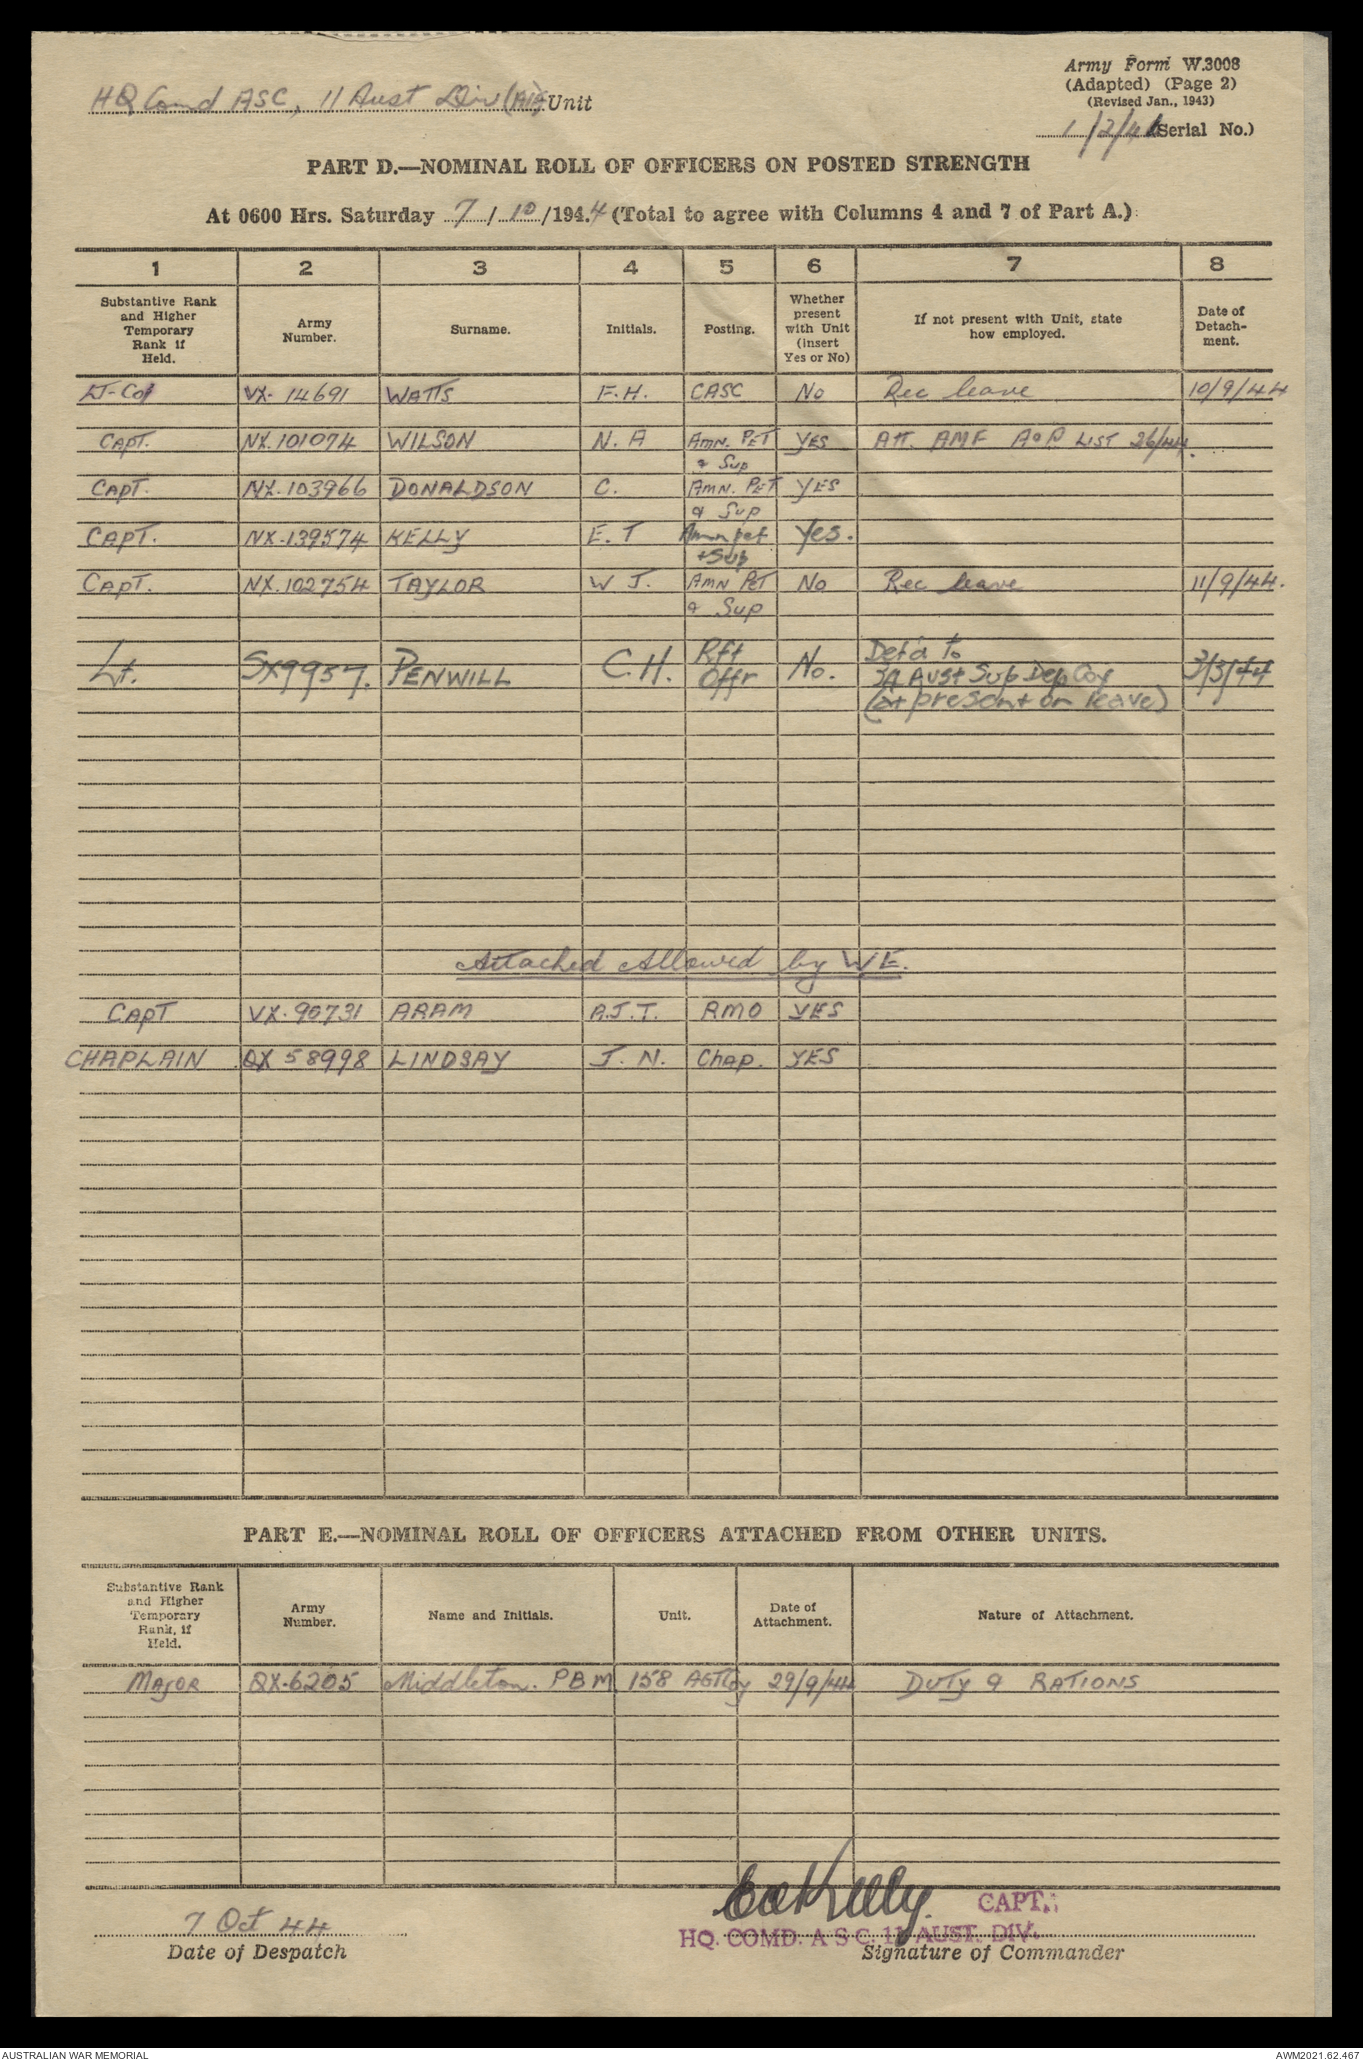 Army Form W.3008
(Adapted) (Page 2)
(Revised Jan., 1943)
HQ Comd ASC, 11 Aust Div (AIF) Unit
1/2/41 (Serial No.)
PART D.—NOMINAL ROLL OF OFFICERS ON POSTED STRENGTH
At 0600 Hrs. Saturday 7/10/1944 (Total to agree with Columns 4 and 7 of Part A.)
1 2 3 4 5 6 7 8
Substantive Rank and Higher Temporary Rank if Held. Army Number. Surname. Initials. Posting. Whether present with Unit (insert Yes or No) If not present with Unit, state how employed. Date of Detach-ment.
Lt-Col VX-14691 WATTS F.H. CASC No Rec leave 10/9/44
CAPT. NX.101074 WILSON N.A AMN. PET & Sup YES Att. AMF LIST 26/44.
CAPT. NX-103966 DONALDSON C. AMN. PET & Sup YES
CAPT. NX-139574 KELLY E.T Amn pet + Sup Yes.
CAPT. NX.102754 TAYLOR W J. AMN PET & Sup No Rec leave 11/9/44.
Lt. SX9957. PENWILL C.H. Rft Offr No. Det'd to
Aust Sup Dep Coy 3/3/44
(at present on leave)
Attached Allowed by WE.
CAPT VX.90731 ARAM A.J.T. RMO YES
CHAPLAIN QX 58998 LINDSAY J. N. Chap. YES
PART E.—NOMINAL ROLL OF OFFICERS ATTACHED FROM OTHER UNITS.
Substantive Rank and Higher Temporary Rank, if Held. Army Number. Name and Initials. Unit. Date of Attachment. Nature of Attachment.
MAJOR QX.6205 Middleton. P B M 158 29/9/44 DUTY & RATIONS
7 Oct 44
Date of Despatch
Kelly. CAPT.
HQ. COMD. A S C. 11 AUST. DIV.
Signature of Commander
AUSTRALIAN WAR MEMORIAL
AWM2021.62.467